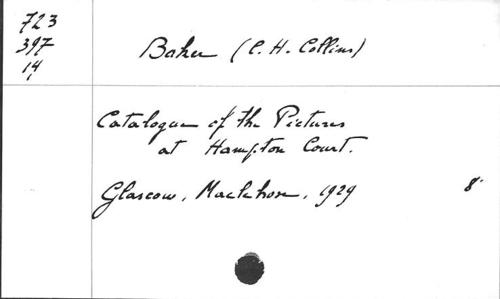 723
397
14
Baker (C. H. Collins)
Catalogue of the Pictures
at Hampton Court.
Glascow, Maclehose, 1929 8°